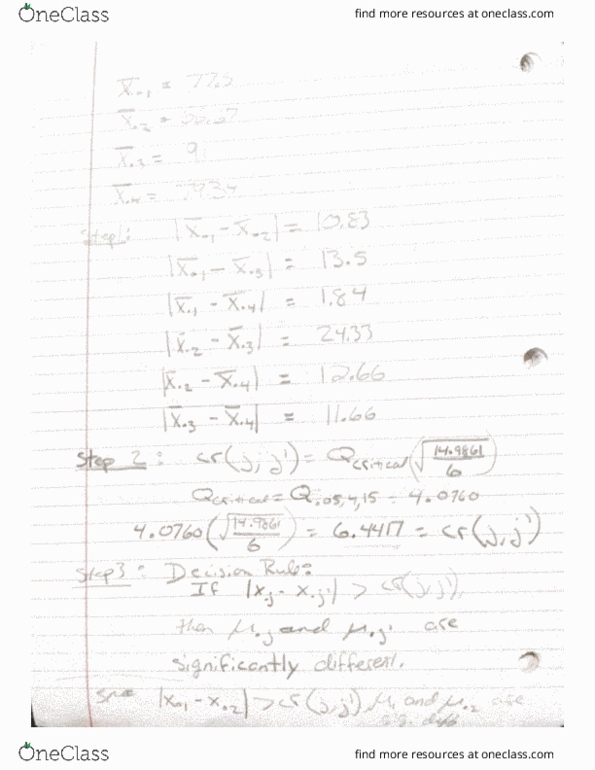 OneClass
find more resources at oneclass.com
X̄.₁ = 77.5
X̄.₂ =
X̄.₃ = 9
X̄.₄ = 79.34
Step 1: |X̄.₁ - X̄.₂| = 10.83
|X̄.₁ - X̄.₃| = 13.5
|X̄.₁ - X̄.₄| = 1.84
|X̄.₂ - X̄.₃| = 24.33
|X̄.₂ - X̄.₄| = 12.66
|X̄.₃ - X̄.₄| = 11.66
Step 2: cr(j,j') = Qcritical(√14.9861/6)
Qcritical = Q.05,4,15 = 4.0760
4.0760(√14.9861/6) = 6.4417 = cr(j,j')
Step 3: Decision Rule:
If |x.j - x.j'| > cr(j,j'),
then μ.j and μ.j' are
significantly different.
Since |x.₁ - x.₂| > cr(j,j'), μ.₁ and μ.₂ are
sig. diff
OneClass
find more resources at oneclass.com